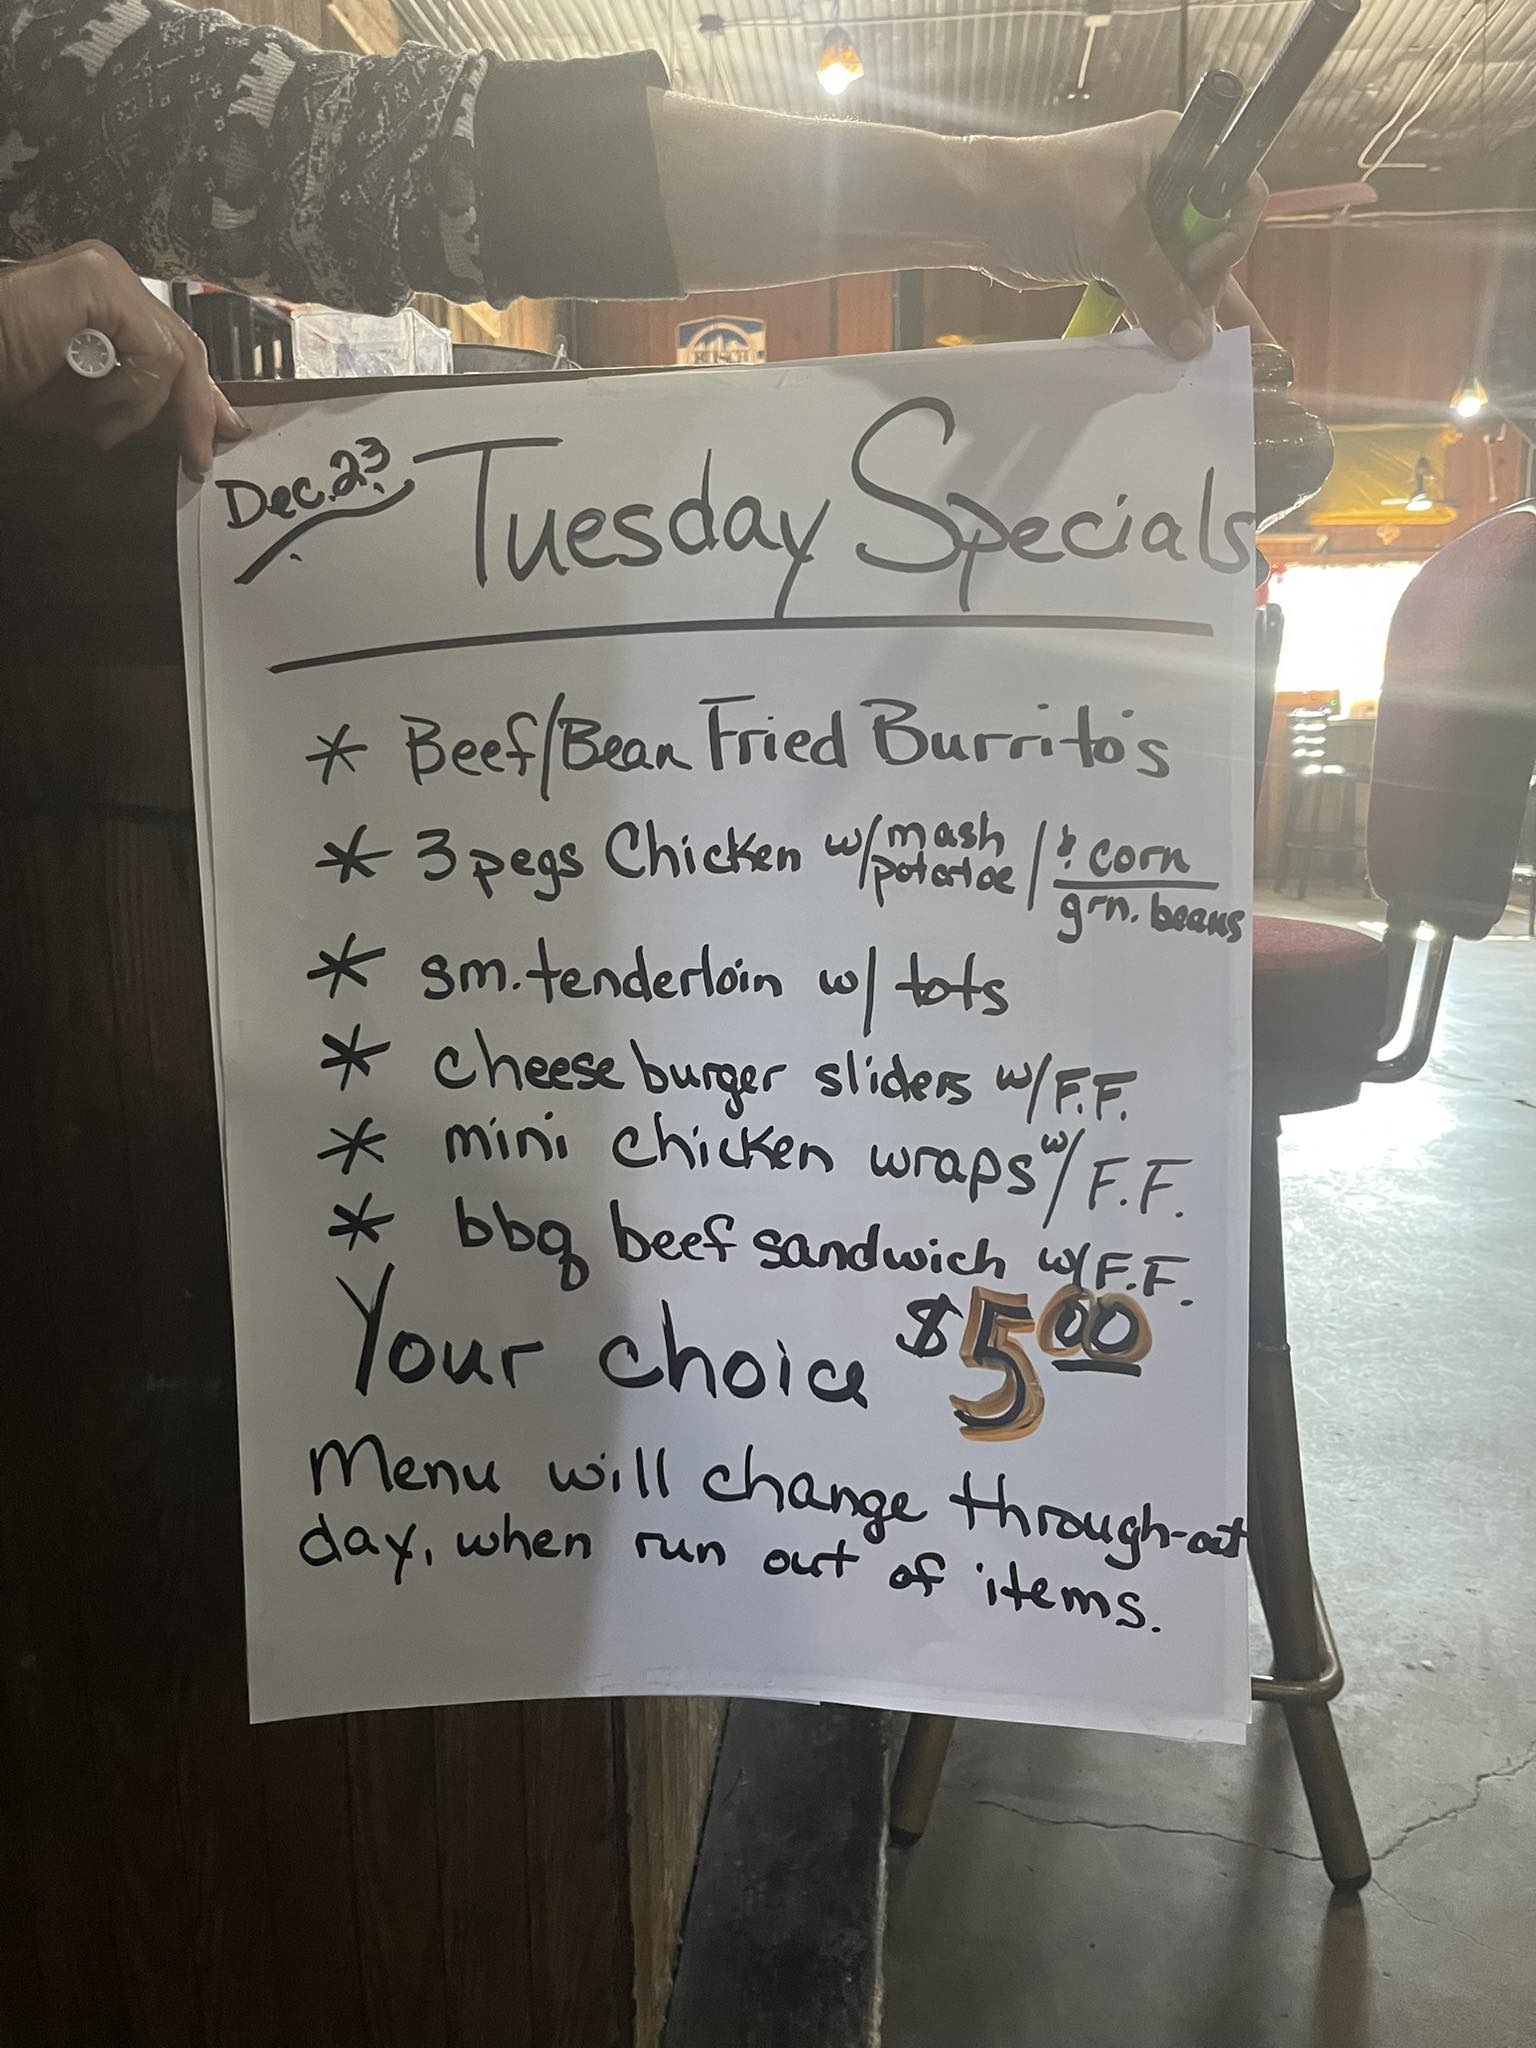 BUSCH
Dec. 23 Tuesday Specials
* Beef/Bean Fried Burrito's
* 3 pcgs Chicken w/ mash potatoe / & corn / grn. beans
* sm. tenderloin w/ tots
* cheese burger sliders w/ F.F.
* mini chicken wraps w/ F.F.
* bbq beef sandwich w/ F.F.
Your choice $5.00
Menu will change through-out
day, when run out of items.